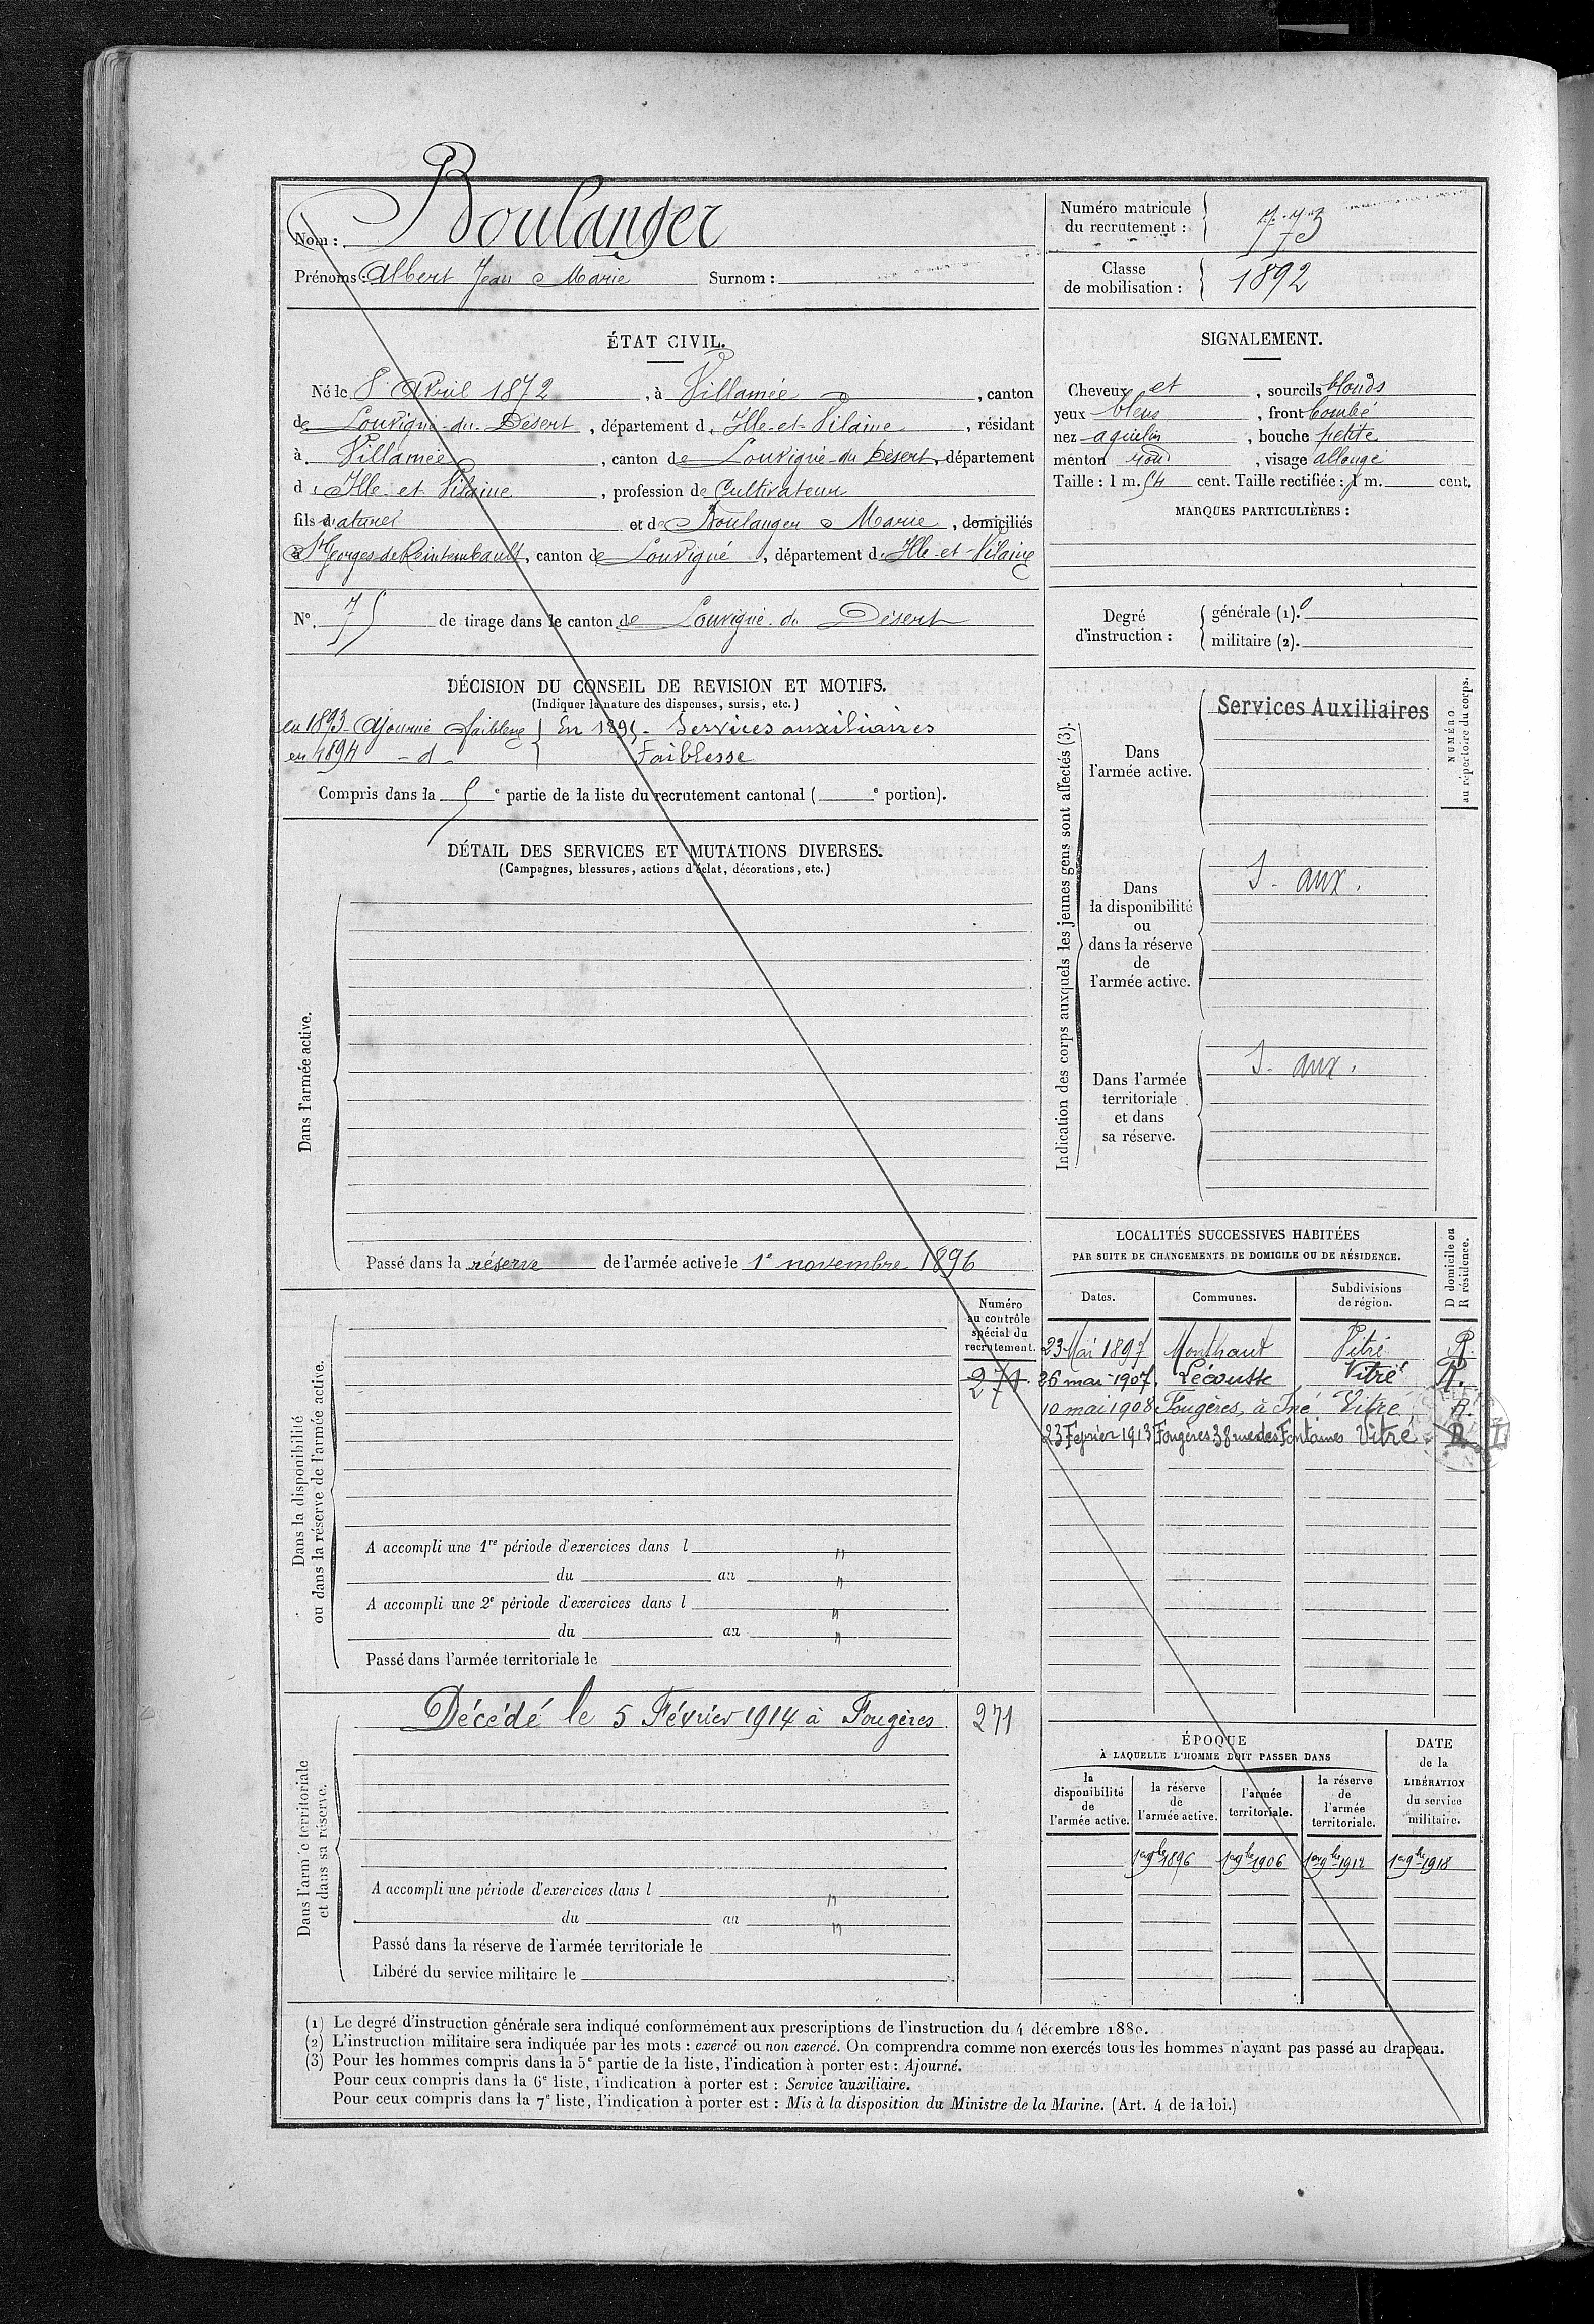 Nom : Boulanger
Prénoms : Albert Jean Marie Surnom :
Numéro matricule du recrutement : 773
Classe de mobilisation : 1892
ÉTAT CIVIL.
Né le 8 Avril 1872, à Villamée, canton
de Louvigné-du-Désert, département d'Ille-et-Vilaine, résidant
à Villamée, canton de Louvigné-du-Désert, département
d'Ille et Vilaine, profession de Cultivateur
fils naturel et de Boulanger Marie, domiciliés
à St Georges de Reintembault, canton de Louvigné, département d'Ille-et-Vilaine
N° 75 de tirage dans le canton de Louvigné du Désert
DÉCISION DU CONSEIL DE REVISION ET MOTIFS.
(Indiquer la nature des dispenses, sursis, etc.)
en 1893 Ajourné faiblesse } En 1895 - Services auxiliaires
en 1894 - d - } Faiblesse
Compris dans la 5e partie de la liste du recrutement cantonal ( e portion).
DÉTAIL DES SERVICES ET MUTATIONS DIVERSES.
(Campagnes, blessures, actions d'éclat, décorations, etc.)
Dans l'armée active.
Passé dans la réserve de l'armée active le 1e novembre 1896
Dans la disponibilité
ou dans la réserve de l'armée active.
Numéro
au contrôle
spécial du
recrutement.
271
A accompli une 1re période d'exercices dans l "
du au "
A accompli une 2e période d'exercices dans l "
du au "
Passé dans l'armée territoriale le
Dans l'armée territoriale
et dans sa réserve.
Décédé le 5 Février 1914 à Fougères. 271
A accompli une période d'exercices dans l "
du au "
Passé dans la réserve de l'armée territoriale le
Libéré du service militaire le
SIGNALEMENT.
Cheveux et, sourcils blonds
yeux bleus, front bombé
nez aquilin, bouche petite
menton rond, visage allongé
Taille : 1 m. 54 cent. Taille rectifiée : 1 m. cent.
MARQUES PARTICULIÈRES :
Degré d'instruction : { générale (1). 0
militaire (2).
Indication des corps auxquels les jeunes gens sont affectés (3).
NUMÉRO
au répertoire du corps.
Dans
l'armée active.
Services Auxiliaires
Dans
la disponibilité
ou
dans la réserve
de
l'armée active.
S. aux.
Dans l'armée
territoriale
et dans
sa réserve.
S. aux.
LOCALITÉS SUCCESSIVES HABITÉES
PAR SUITE DE CHANGEMENTS DE DOMICILE OU DE RÉSIDENCE.
D domicile ou
R résidence.
Dates. Communes. Subdivisions de région.
23 Mai 1897 Monthaut Vitré R.
26 mai 1907. Lécousse Vitré R.
10 mai 1908 Fougères, à Iné Vitré R.
23 Fevrier 1913 Fougères 38 rue des Fontaines Vitré R
ÉPOQUE
À LAQUELLE L'HOMME DOIT PASSER DANS
la disponibilité de l'armée active.
la réserve de l'armée active.
l'armée territoriale.
la réserve de l'armée territoriale.
DATE de la LIBÉRATION du service militaire.
1er 9bre 1896 1er 9bre 1906 1er 9bre 1912 1er 9bre 1918
(1) Le degré d'instruction générale sera indiqué conformément aux prescriptions de l'instruction du 4 décembre 1889.
(2) L'instruction militaire sera indiquée par les mots : exercé ou non exercé. On comprendra comme non exercés tous les hommes n'ayant pas passé au drapeau.
(3) Pour les hommes compris dans la 5e partie de la liste, l'indication à porter est : Ajourné.
Pour ceux compris dans la 6e liste, l'indication à porter est : Service auxiliaire.
Pour ceux compris dans la 7e liste, l'indication à porter est : Mis à la disposition du Ministre de la Marine. (Art. 4 de la loi.)